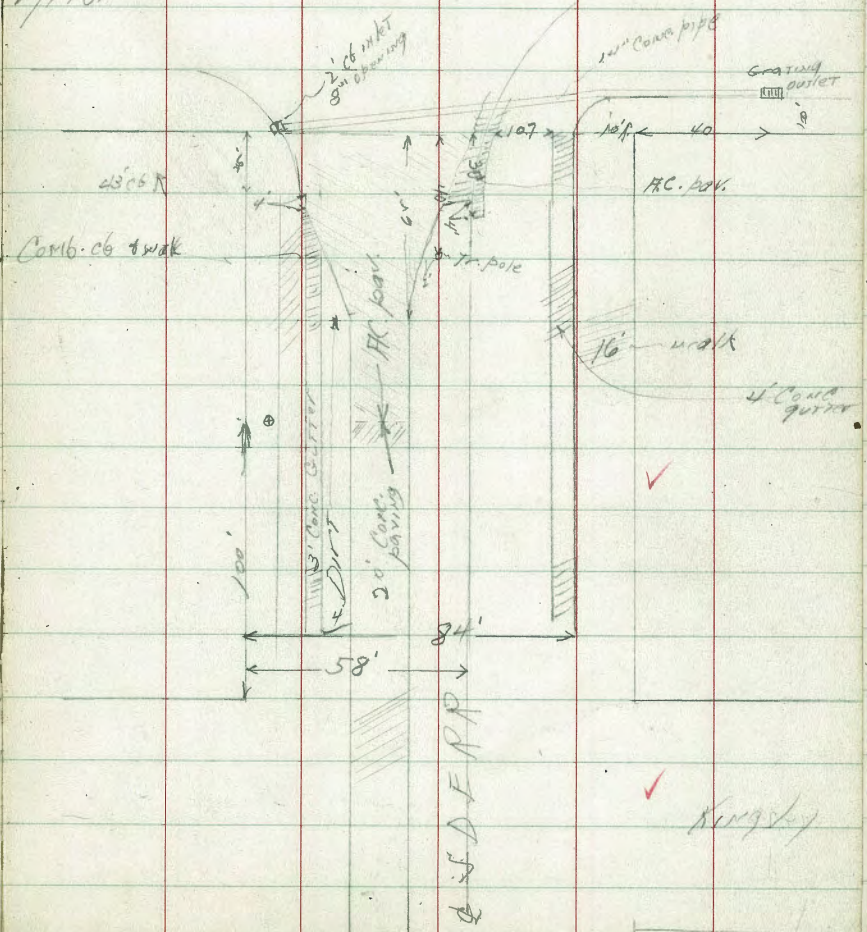 2' cb inlet
8" opening
Conc pipe
Grating
outlet
10'
107
10'R
40
43' cb R
4'
A.C. pav.
Comb. cb & walk
Tr. pole
A.C. pav.
16'
walk
4' Conc
gutter
3' Conc Gutter
Dirt
20' Conc.
paving
100'
84'
58'
Kingsley